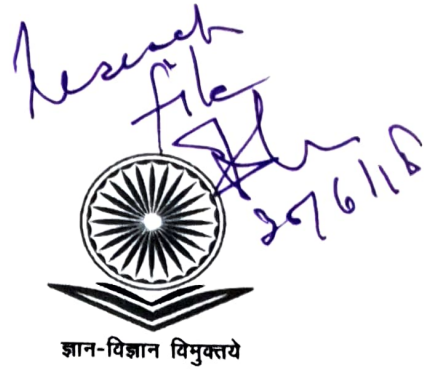 Research
file
ज्ञान-विज्ञान विमुक्तये